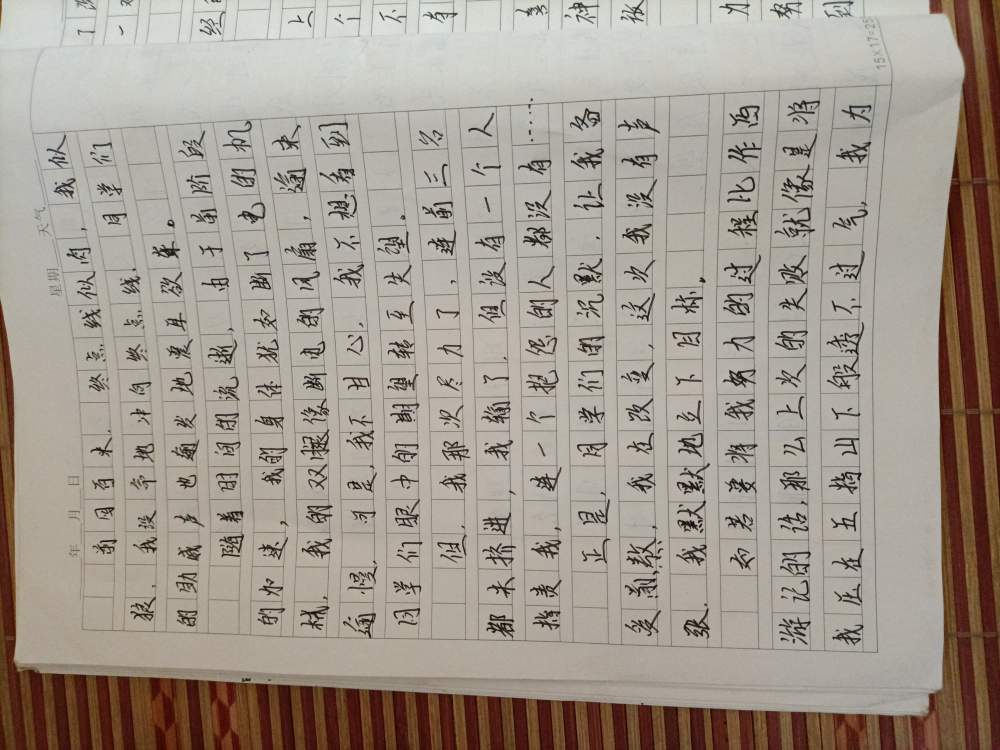 年 月 日 星期 天气
前围百米,终点线似肉,我似
狼,我没命地冲向终点线,同学们
的助威声也越发地震耳欲聋。
随着时间的流逝,由于前阶段
的加速,我的身体犹如断了电的机
械,我的双腿像断电的风扇,逾来
逾慢,可是,我不甘心,我不想看到
同学们眼中的期望转至失望。
但,我那次尽力了,连前三名
都未挤进,我输了,但没有一个人
指责我,连一个抱怨的人都没有……
正是,同学们的沉默,让我备
受煎熬,我在改变,这次我没有声
张,我默默地立下目标。
如若要将我努力的过程比作西
游记的话,那么上次的失败就像是将
我压在五指山下般透不过气,我为
15×17=25